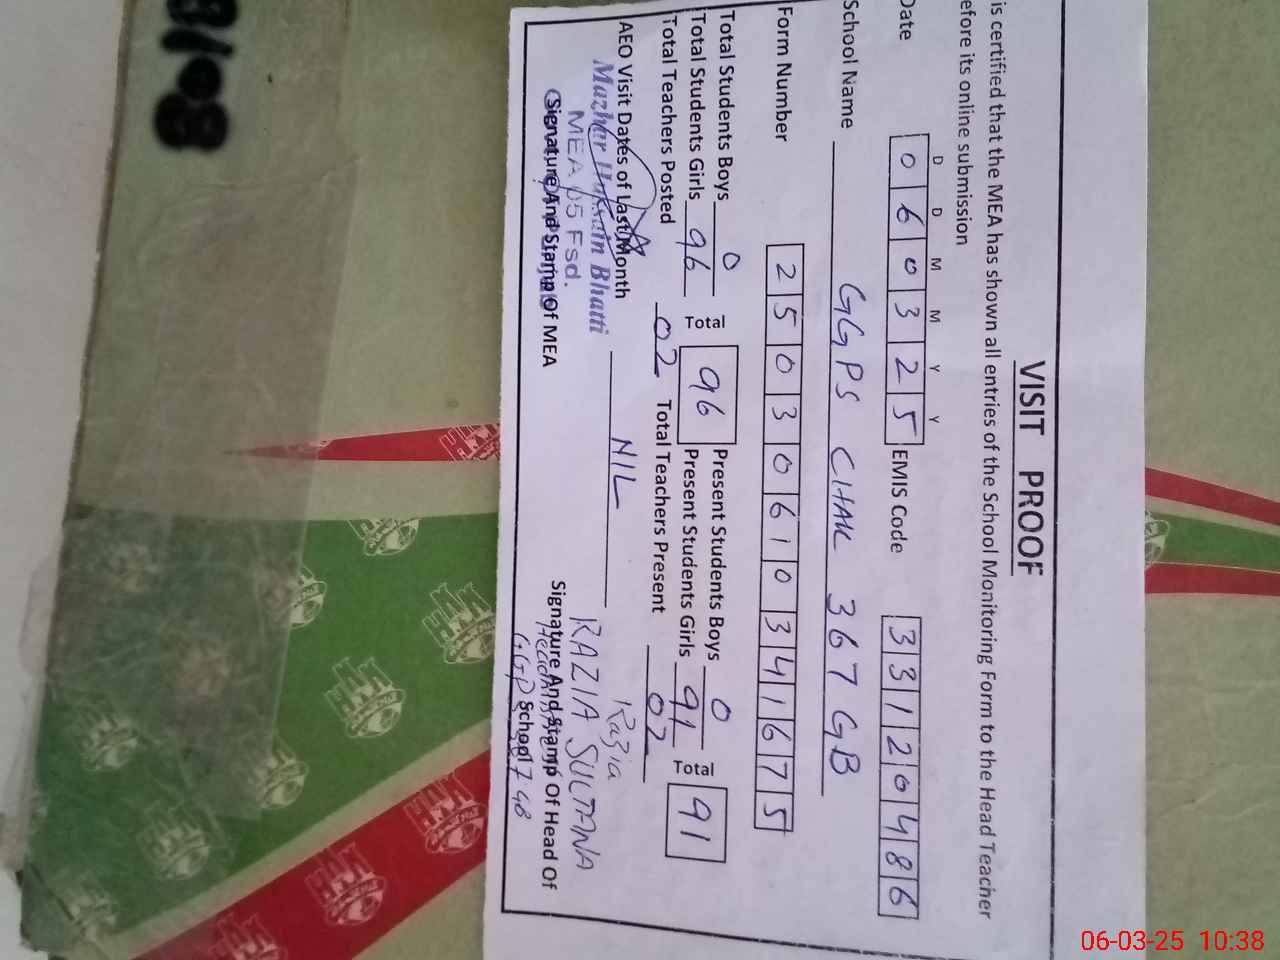 VISIT PROOF
is certified that the MEA has shown all entries of the School Monitoring Form to the Head Teacher
efore its online submission
D D M M Y Y
Date 0 6 0 3 2 5 EMIS Code 3 3 1 2 0 4 8 6
School Name GGPS CHAK 367 GB
Form Number 2 5 0 3 0 6 1 0 3 4 1 6 7 5
Total Students Boys 0 Present Students Boys 0
Total Students Girls 96 Total 96 Present Students Girls 91 Total 91
Total Teachers Posted 02 Total Teachers Present 02
AEO Visit Dates of Last Month NIL
Razia
Mazhar Hussain Bhatti RAZIA SULTANA
MEA 05 Fsd.
Signature And Stamp Of MEA Signature And Stamp Of Head Of
School
06-03-25 10:38